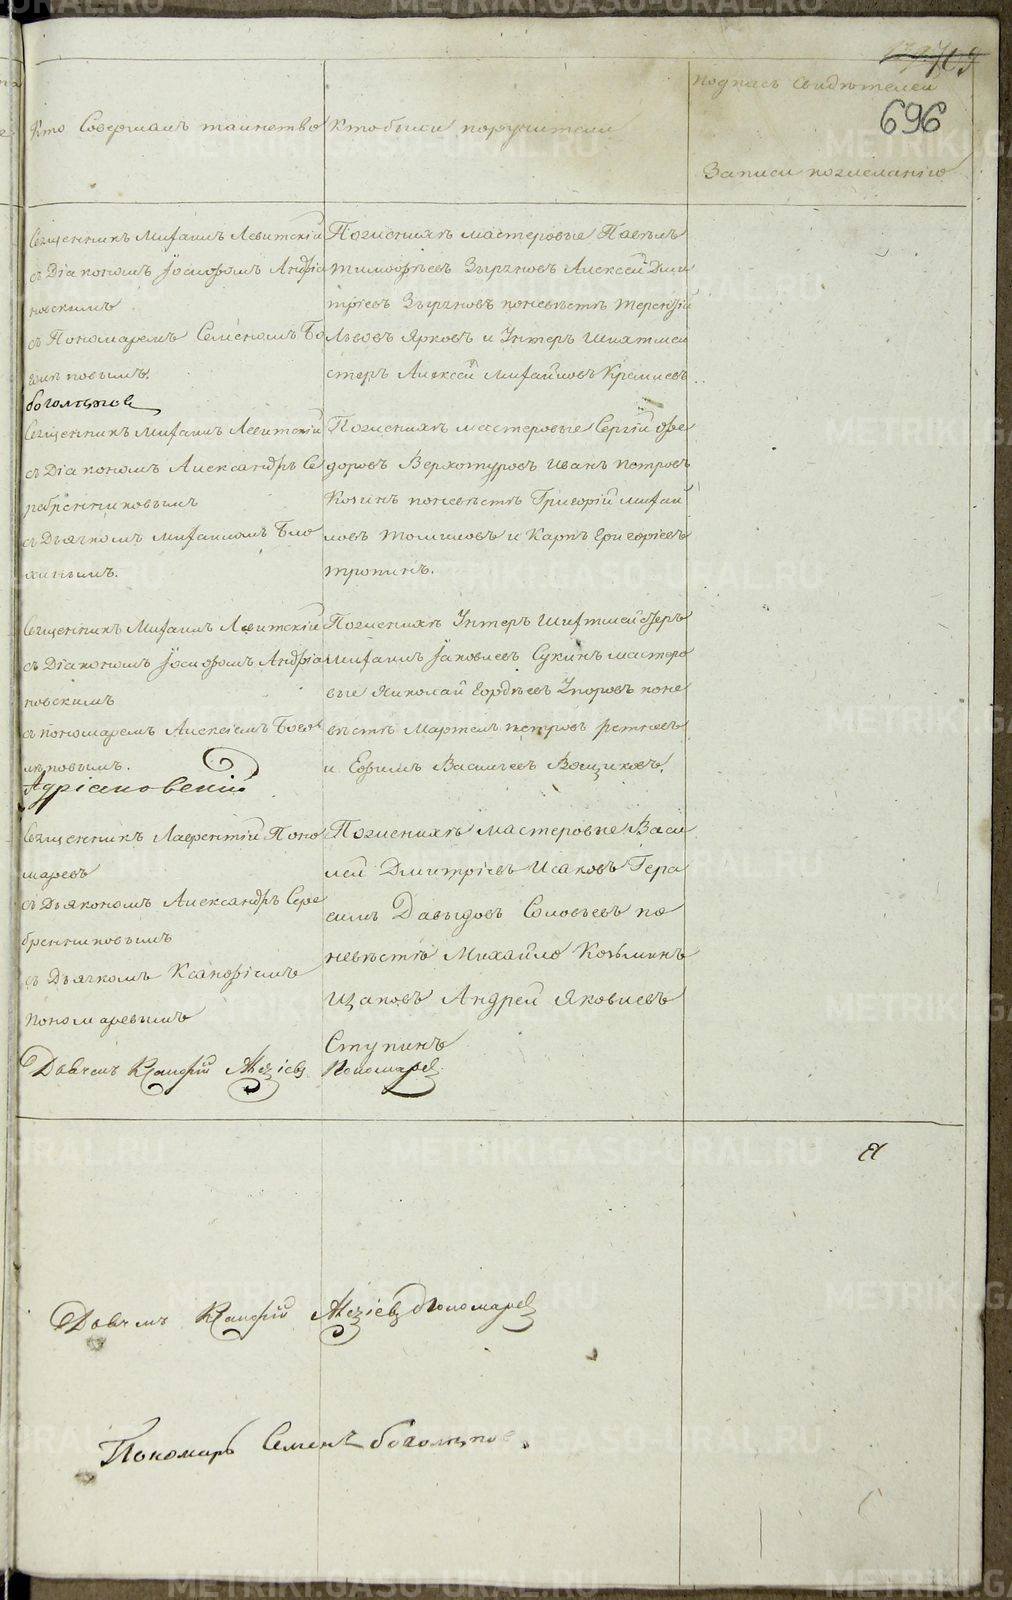 709
696
Кто Совершалъ таинство
Кто были поручители
подпись свидѣтелей
Записи по желанію
Священникъ Михаилъ Левитскій
съ Діакономъ Іосифомъ Андріа
новскимъ
съ Пономаремъ Семеномъ Бо
голѣповымъ.
боголѣповъ
По женихѣ мастеровые Павелъ
Тимофѣевъ Зыряновъ Алексей Дми
тріевъ Зыряновъ по невѣстѣ Терентій
Львовъ Ярковъ и Унтеръ Шихтмей
стеръ Алексей Михайловъ Кремлевъ
Священникъ Михаилъ Левитскій
съ Діакономъ Александръ Се
ребренниковымъ
съ Дьячкомъ Михаиломъ Бло
хинымъ.
По женихѣ мастеровые Сергій Фе
доровъ Верхотуровъ Иванъ Петровъ
Козинъ по невѣстѣ Григорій Михай
ловъ Томиловъ и Карпъ Григоріевъ
Тропинъ.
Священникъ Михаилъ Левитскій
съ Діакономъ Іосифомъ Андріа
новскимъ
съ пономаремъ Алексіемъ Богол
ѣповымъ.
Адріановскій
По женихѣ Унтеръ Шихтмейстеръ
Михаилъ Яковлевъ Сукинъ мастеро
вые Николай Гордѣевъ Упоровъ по не
вѣстѣ Мартемъ Петровъ Ретневъ
и Ефимъ Васильевъ Ващиковъ.
Священникъ Лаврентій Поно
маревъ
съ Дьякономъ Александръ Сере
бренниковымъ
съ Дьячкомъ Ксанофіемъ
Пономаревымъ
По женихѣ мастеровые Васи
лей Дмитріевъ Исаковъ Гера
симъ Давыдовъ Соловьевъ по
невѣстѣ Михайло Козьминъ
Ушаковъ Андрей Яковлевъ
Ступинъ
Дьячекъ Ксанофій Пономаревъ
Дьячекъ Ксанофій Пономаревъ
Пономарь Семенъ боголѣповъ.
METRIKI.GASO-URAL.RU